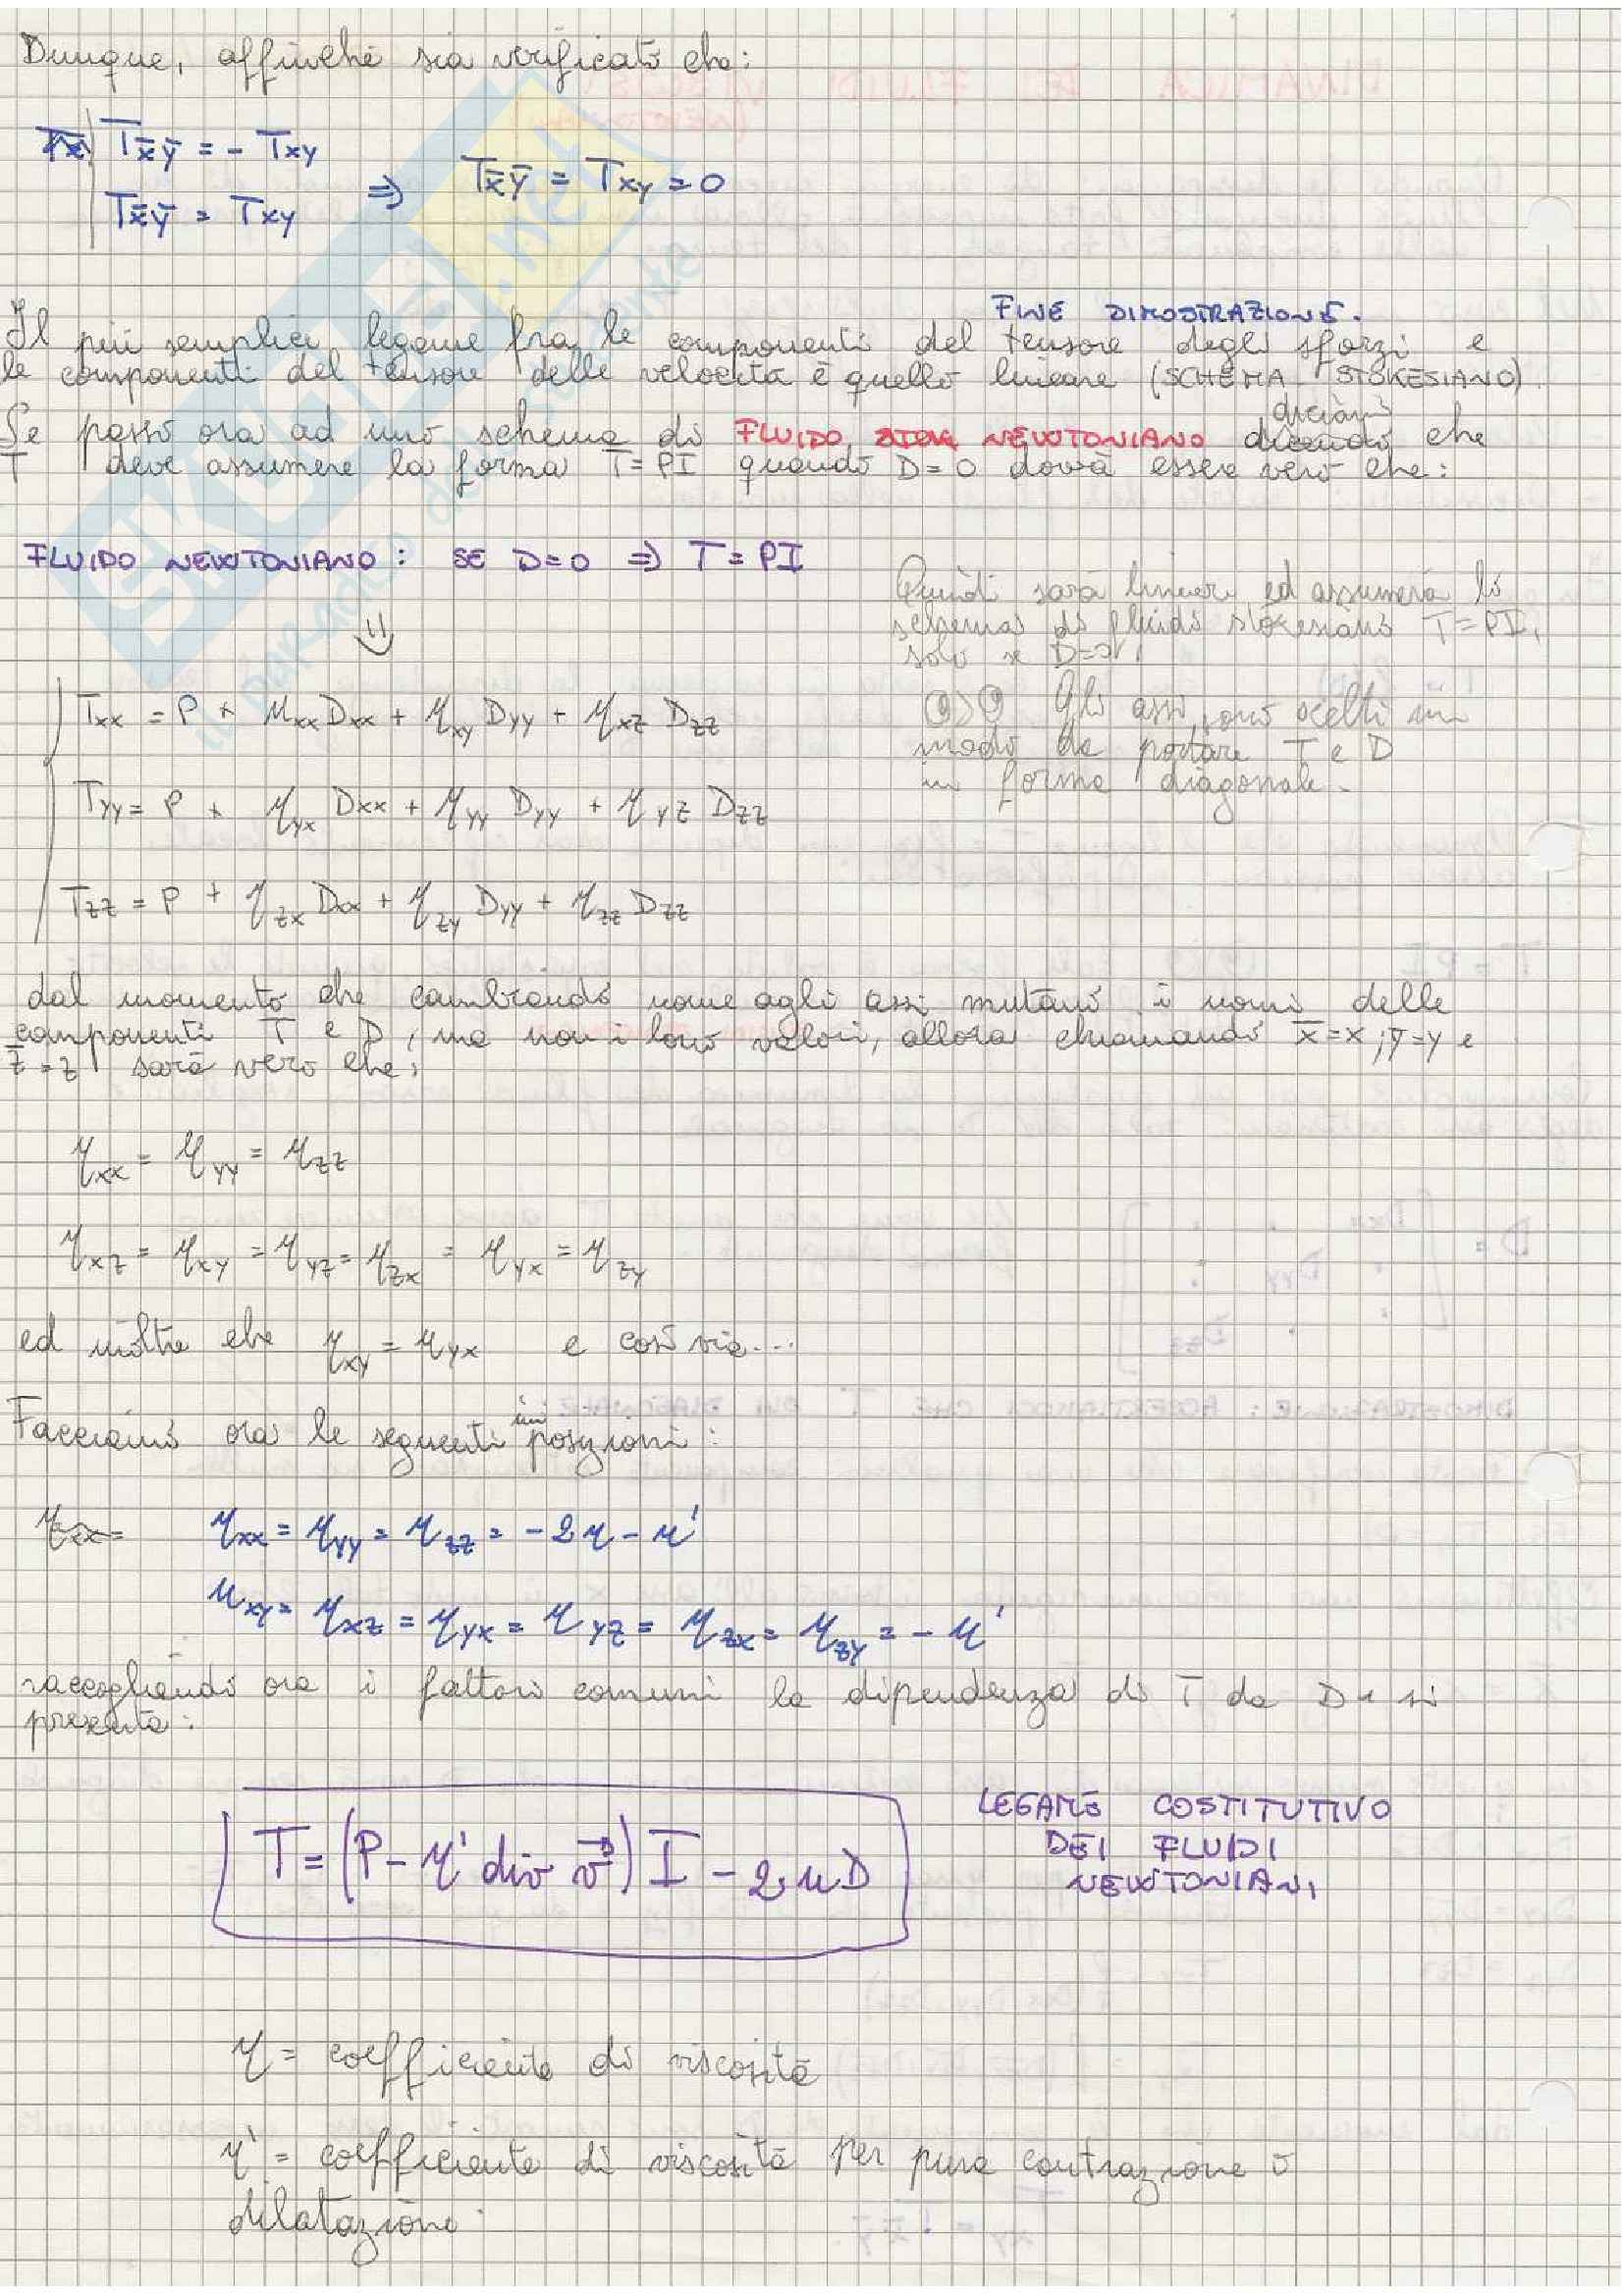 Dunque, affinché sia verificato che:
T x̄ȳ = - Txy
T x̄ȳ = Txy
⇒ T x̄ȳ = Txy = 0
FINE DIMOSTRAZIONE.
Il più semplice legame fra le componenti del tensore degli sforzi e
le componenti del tensore delle velocità è quello lineare (SCHEMA STOKESIANO).
diciamo
Se passo ora ad uno schema di FLUIDO NEWTONIANO che
T deve assumere la forma T=PI quando D=0 dovrà essere vero che:
FLUIDO NEWTONIANO: SE D=0 ⇒ T=PI
Quindi sarà lineare ed assumerà lo
schema di fluido stokesiano T=PI,
solo se D=0.
Gli assi sono scelti in
modo da portare T e D
in forma diagonale.
Txx = P + ηxx Dxx + ηxy Dyy + ηxz Dzz
Tyy = P + ηyx Dxx + ηyy Dyy + ηyz Dzz
Tzz = P + ηzx Dxx + ηzy Dyy + ηzz Dzz
dal momento che cambiando nome agli assi mutano i nomi delle
componenti T e D, ma non i loro valori, allora chiamando x̄=x; ȳ=y e
z̄=z sarà vero che:
ηxx = ηyy = ηzz
ηxz = ηxy = ηyz = ηzx = ηyx = ηzy
ed inoltre che ηxy = ηyx e così via...
Facciamo ora le seguenti imposizioni:
ηxx = ηyy = ηzz = -2η - η'
ηxy = ηxz = ηyx = ηyz = ηzx = ηzy = - η'
raccogliendo ora i fattori comuni la dipendenza di T da D si
presenta:
T = (P - η' div v⃗) I - 2ηD
LEGAME COSTITUTIVO
DEI FLUIDI
NEWTONIANI
η = coefficiente di viscosità
η' = coefficiente di viscosità per pura contrazione o
dilatazione.
SKUOLA.net